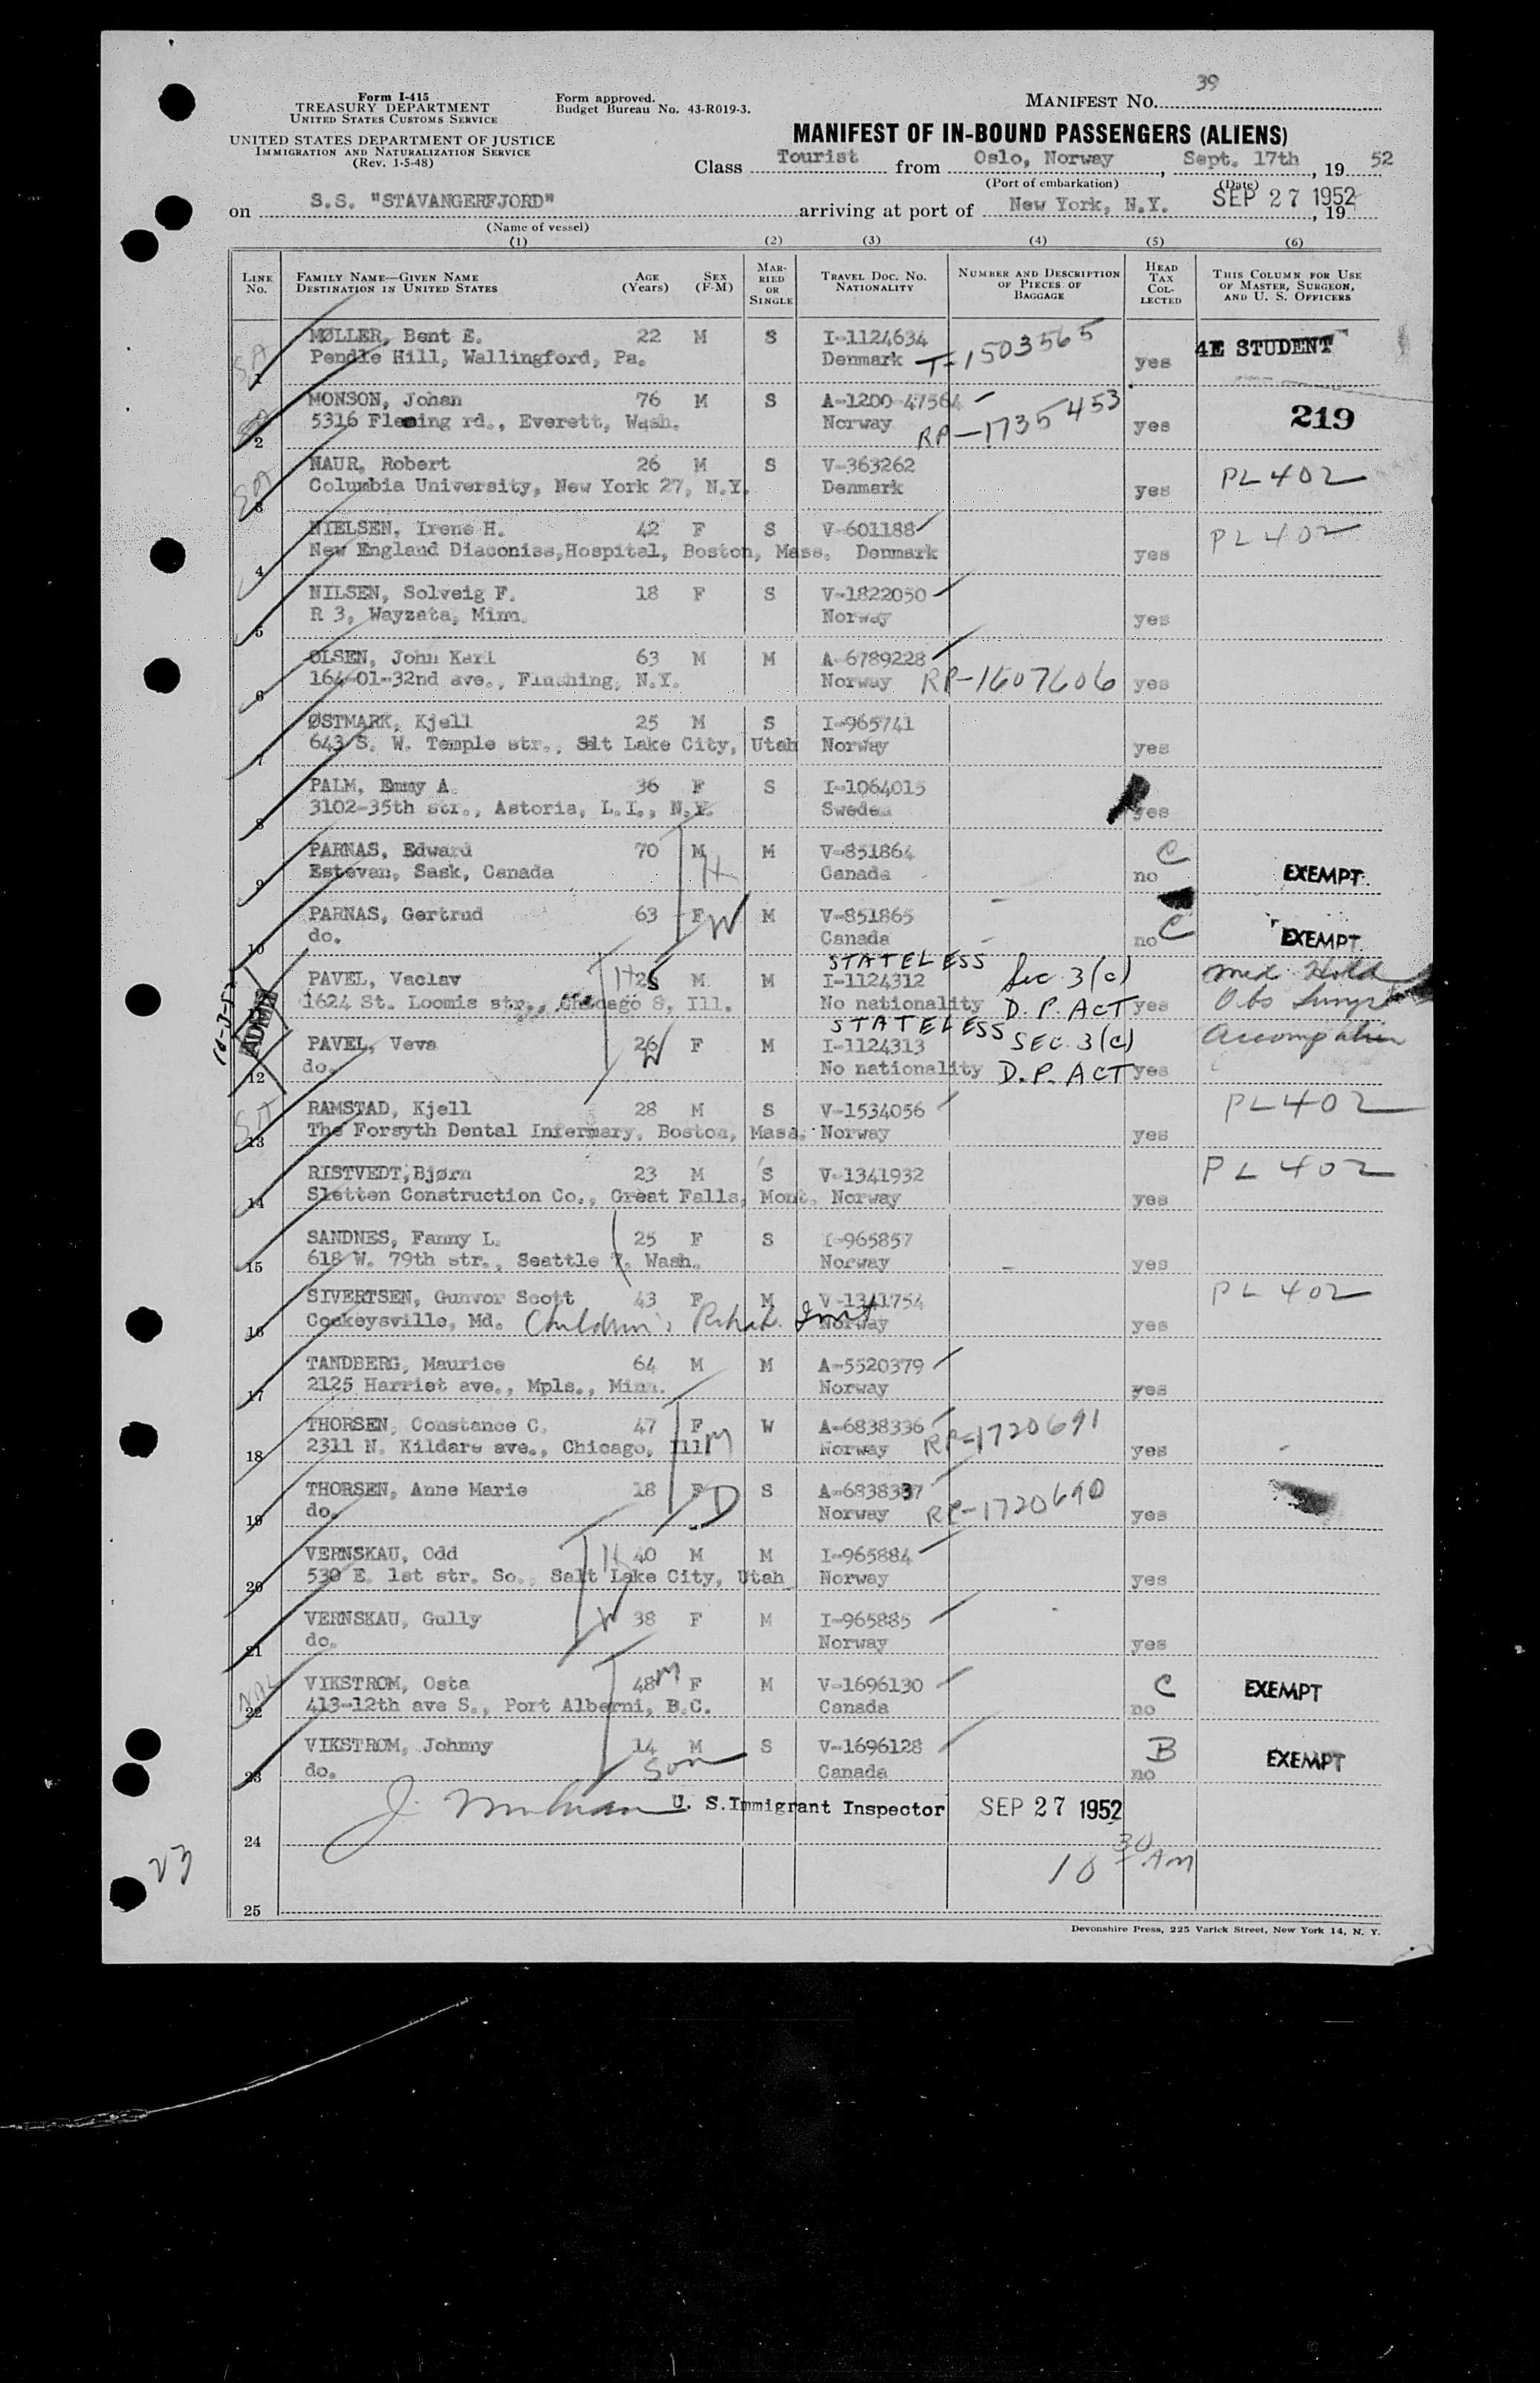 39
Form I-415
TREASURY DEPARTMENT
UNITED STATES CUSTOMS SERVICE
UNITED STATES DEPARTMENT OF JUSTICE
IMMIGRATION AND NATURALIZATION SERVICE
(Rev. 1-5-48)
Form approved.
Budget Bureau No. 43-R019-3.
MANIFEST NO.
MANIFEST OF IN-BOUND PASSENGERS (ALIENS)
Class Tourist from Oslo, Norway, Sept. 17th, 19 52
(Port of embarkation) (Date)
on S.S. "STAVANGERFJORD" arriving at port of New York, N.Y. SEP 27 1952, 19
(Name of vessel)
(1) (2) (3) (4) (5) (6)
LINE NO. FAMILY NAME—GIVEN NAME DESTINATION IN UNITED STATES AGE (Years) SEX (F-M) MARRIED OR SINGLE TRAVEL DOC. NO. NATIONALITY NUMBER AND DESCRIPTION OF PIECES OF BAGGAGE HEAD TAX COLLECTED THIS COLUMN FOR USE OF MASTER, SURGEON, AND U. S. OFFICERS
MØLLER, Bent E. 22 M S I-1124634 4E STUDENT
1 Pendle Hill, Wallingford, Pa. Denmark T-1503565 yes
MONSON, Johan 76 M S A-1200-47564 219
2 5316 Fleming rd., Everett, Wash. Norway RP-1735453 yes
NAUR, Robert 26 M S V-363262 PL 402
3 Columbia University, New York 27, N.Y. Denmark yes
NIELSEN, Irene H. 42 F S V-601188 PL 402
4 New England Diaconiss,Hospital, Boston, Mass. Denmark yes
NILSEN, Solveig F. 18 F S V-1822050
5 R 3, Wayzata, Minn. Norway yes
OLSEN, John Karl 63 M M A-6789228
6 164-01-32nd ave., Flushing, N.Y. Norway RP-1607606 yes
ØSTMARK, Kjell 25 M S I-965741
7 643 S. W. Temple str., Slt Lake City, Utah Norway yes
PALM, Emmy A. 36 F S I-1064015
8 3102-35th str., Astoria, L.I., N.Y. Sweden yes
PARNAS, Edward 70 M H M V-851864 C
9 Estevan, Sask, Canada Canada no EXEMPT
PARNAS, Gertrud 63 F W M V-851865
10 do. Canada no C EXEMPT
STATELESS
PAVEL, Vaclav H 26 M M I-1124312 Sec. 3(c) Med Hold
1624 St. Loomis str., Chicago 8, Ill. No nationality D.P. ACT yes Obs
ADM
STATELESS
PAVEL, Veva 26 W F M I-1124313 SEC. 3(c)
12 do. No nationality D.P. ACT yes
RAMSTAD, Kjell 28 M S V-1534056 PL 402
13 The Forsyth Dental Infermary, Boston, Mass. Norway yes
RISTVEDT, Bjørn 23 M S V-1341932 PL 402
14 Sletten Construction Co., Great Falls, Mont. Norway yes
SANDNES, Fanny L. 25 F S I-965857
15 618 W. 79th str., Seattle 7, Wash. Norway yes
SIVERTSEN, Gunvor Scott 43 F M V-1341754 PL 402
16 Cockeysville, Md. Children's Rehab. Inst Norway yes
TANDBERG, Maurice 64 M M A-5520379
17 2125 Harriet ave., Mpls., Minn. Norway yes
THORSEN, Constance C. 47 F W A-6838336
18 2311 N. Kildare ave., Chicago, Ill M Norway RP-1720691 yes
THORSEN, Anne Marie 18 F D S A-6838337
19 do. Norway RP-1720690 yes
VERNSKAU, Odd H 40 M M I-965884
20 530 E. 1st str. So., Salt Lake City, Utah Norway yes
VERNSKAU, Gully W 38 F M I-965885
21 do. Norway yes
VIKSTROM, Osta 48 M F M V-1696130 C EXEMPT
22 413-12th ave S., Port Alberni, B.C. Canada no
VIKSTROM, Johnny 14 M S V-1696128 B EXEMPT
23 do. Son Canada no
U. S. Immigrant Inspector SEP 27 1952
24
10 30 AM
23
25
Devonshire Press, 225 Varick Street, New York 14, N. Y.